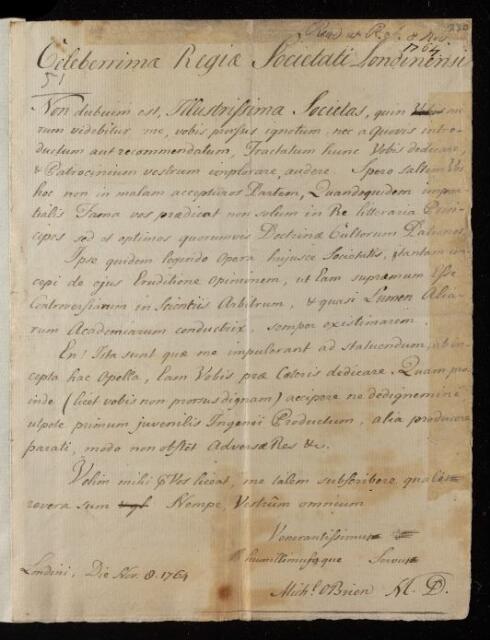 Read at R.S. 8 Nov
1764
230
Celeberrimæ Regiæ Societati Londinensi
51
Non dubium est, Illustrissima Societas, quin
rum videbitur me, vobis prorsus ignotum, nec a Quovis intro-
ductum aut recommendatum, Tractatum hunc Vobis dedicare,
& Patrocinium vestrum implorare, audere. Spero saltem Vos
hoc non in malam accepturos Partem, Quandoquidem impar-
tialis Fama vos prædicat non solum in Re litteraria Prin-
cipes sed et optimos quorumvis Doctrinæ Cultorum Patronos.
Ipse quidem legendo Opera hujusce Societatis, tantam in-
cepi de ejus Eruditione Opinionem, ut Eam supremum Esse
Controversiarum in Scientiis Arbitrum, & quasi Lumen Alia-
rum Academiarum conductrix, semper existimarem.
En! Ista sunt quæ me impulerant ad statuendum, ab in-
cepta hac Opella, Eam Vobis præ Cæteris dedicare. Quam pro-
inde (licet vobis non prorsus dignam) accipere ne dedignemini
utpote primum juvenilis Ingenii Productum, alia producere
parati, modo non obstent Adversæ Res &c.
Velim mihi per Vos liceat, me talem subscribere, qualis
revera sum Nempe, Vestrûm omnium
Venerantissimus
humillimusque Servus
Londini, Die Nov. 8. 1764
Mich.l OBrien M. D.